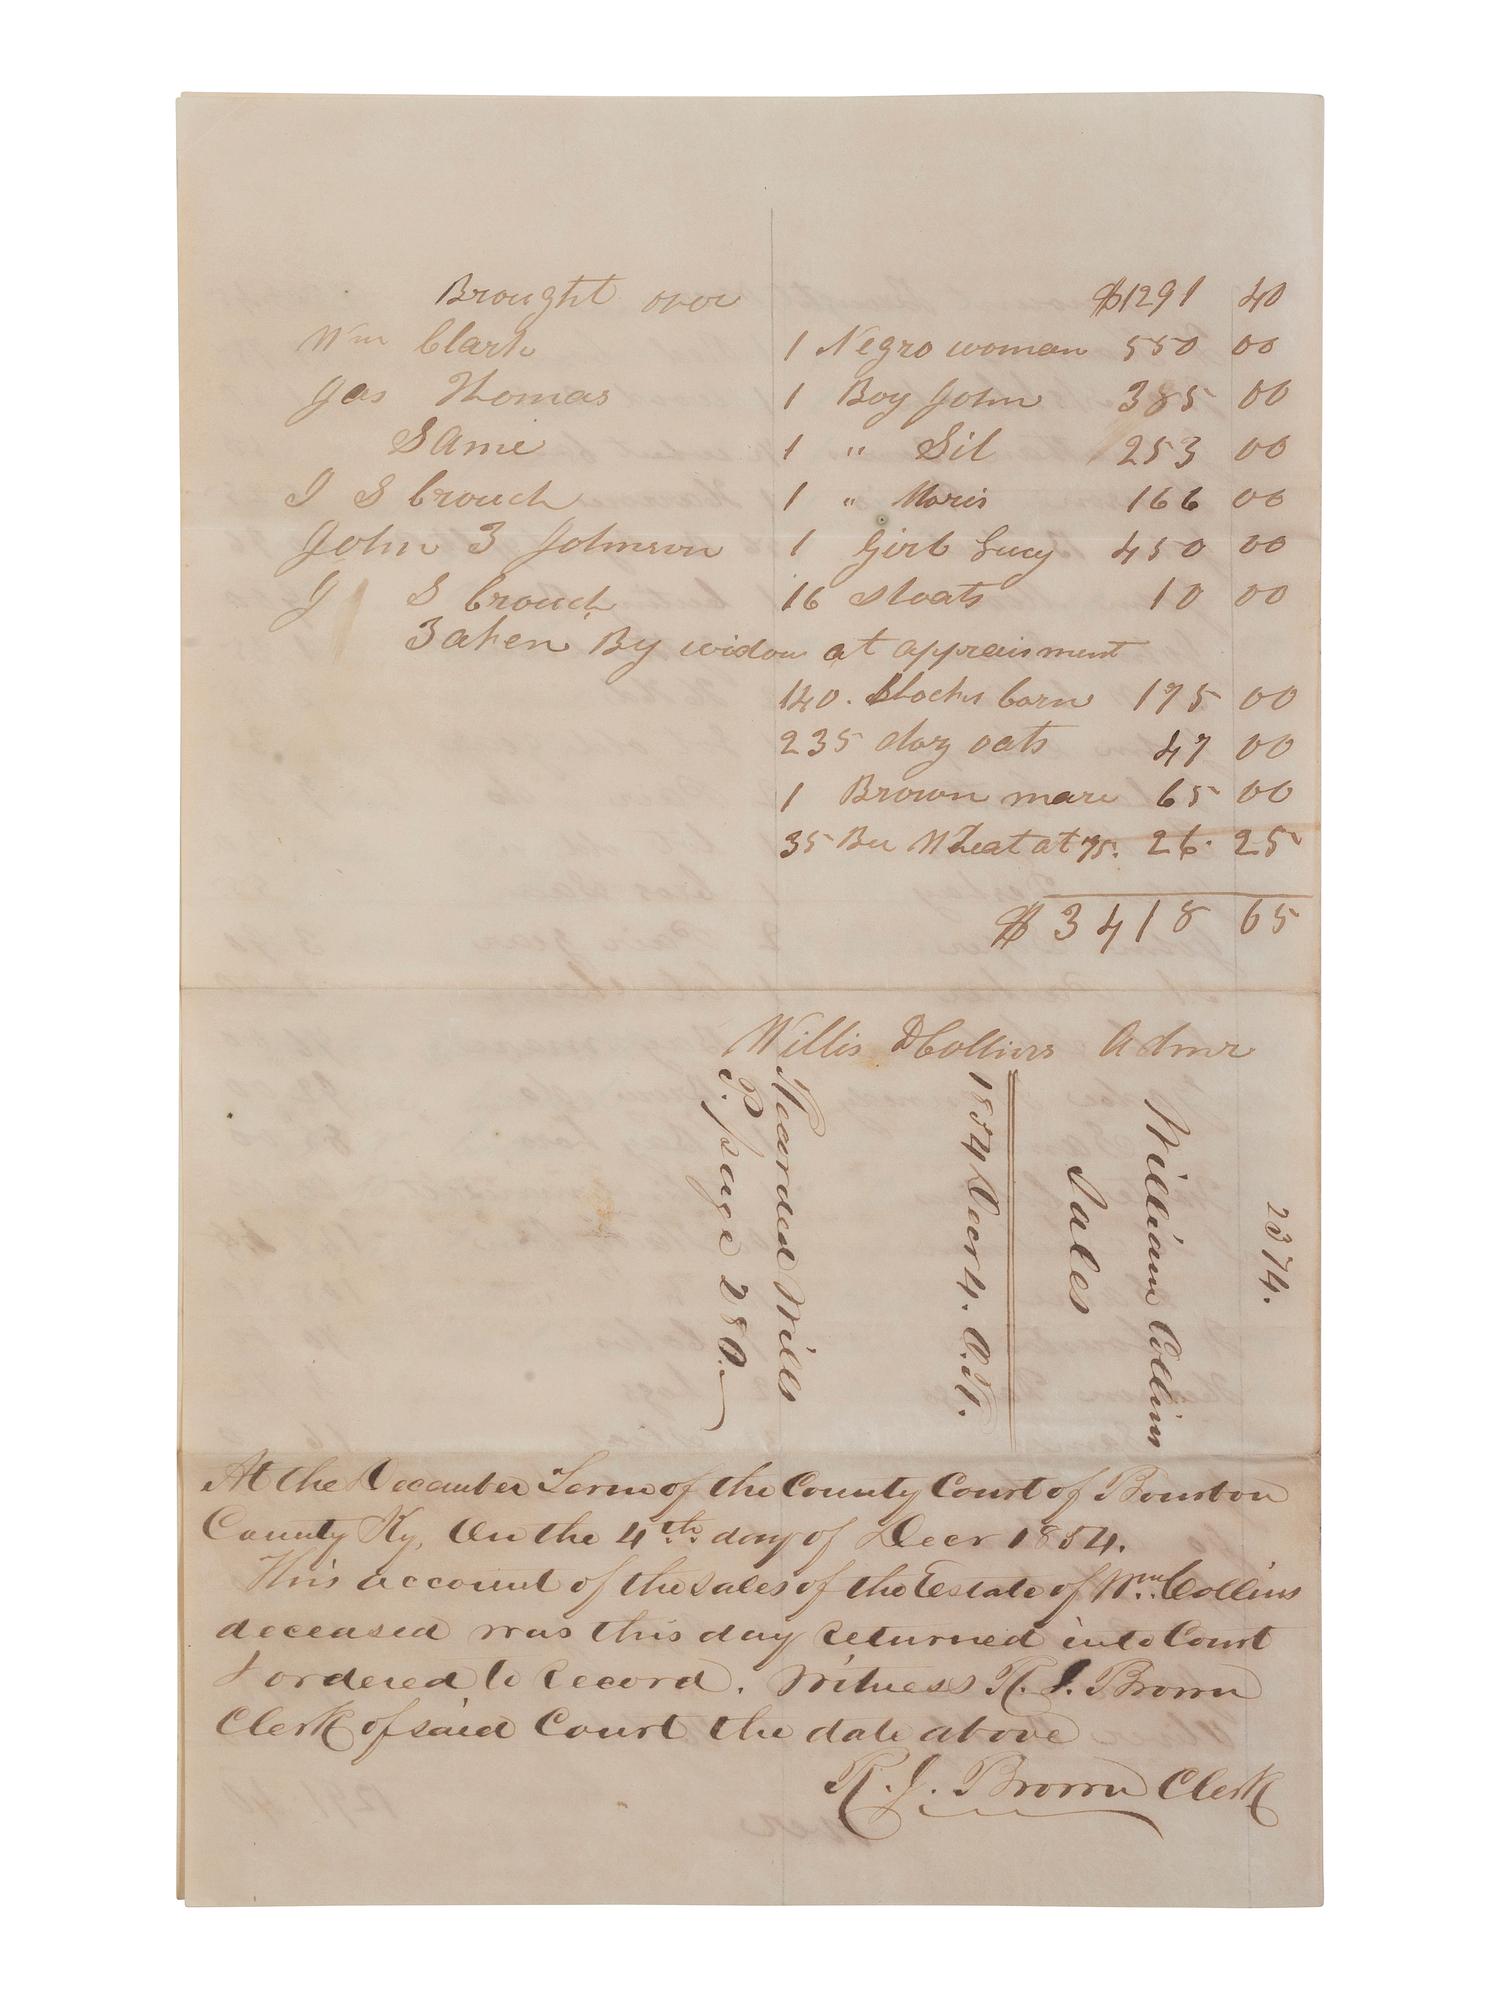 Brought over $1291 40
Wm Clark 1 Negro woman 550 00
Jas Thomas 1 Boy John 385 00
Same 1 " Sil 253 00
J S Crouch 1 " Moris 166 00
John T Johnson 1 Girl Lucy 450 00
J S Crouch 16 shoats 10 00
Taken By widow at appraisment
140. Shocks Corn 175 00
235 doz oats 47 00
1 Brown mare 65 00
35 Bu Wheat at 75. 26. 25
$3418 65
Willis Collins Admr
2374.
William Collins
Sales
1854 Decr 4. O.R.
Recorded Wills
P. page 280.
At the December Term of the County Court of Bourbon
County Ky, On the 4th day of Decr 1854.
This account of the sales of the Estate of Wm. Collins
deceased was this day returned into Court
& ordered to record. Witness R. J. Brown
Clerk of said Court the date above
R. J. Brown Clerk